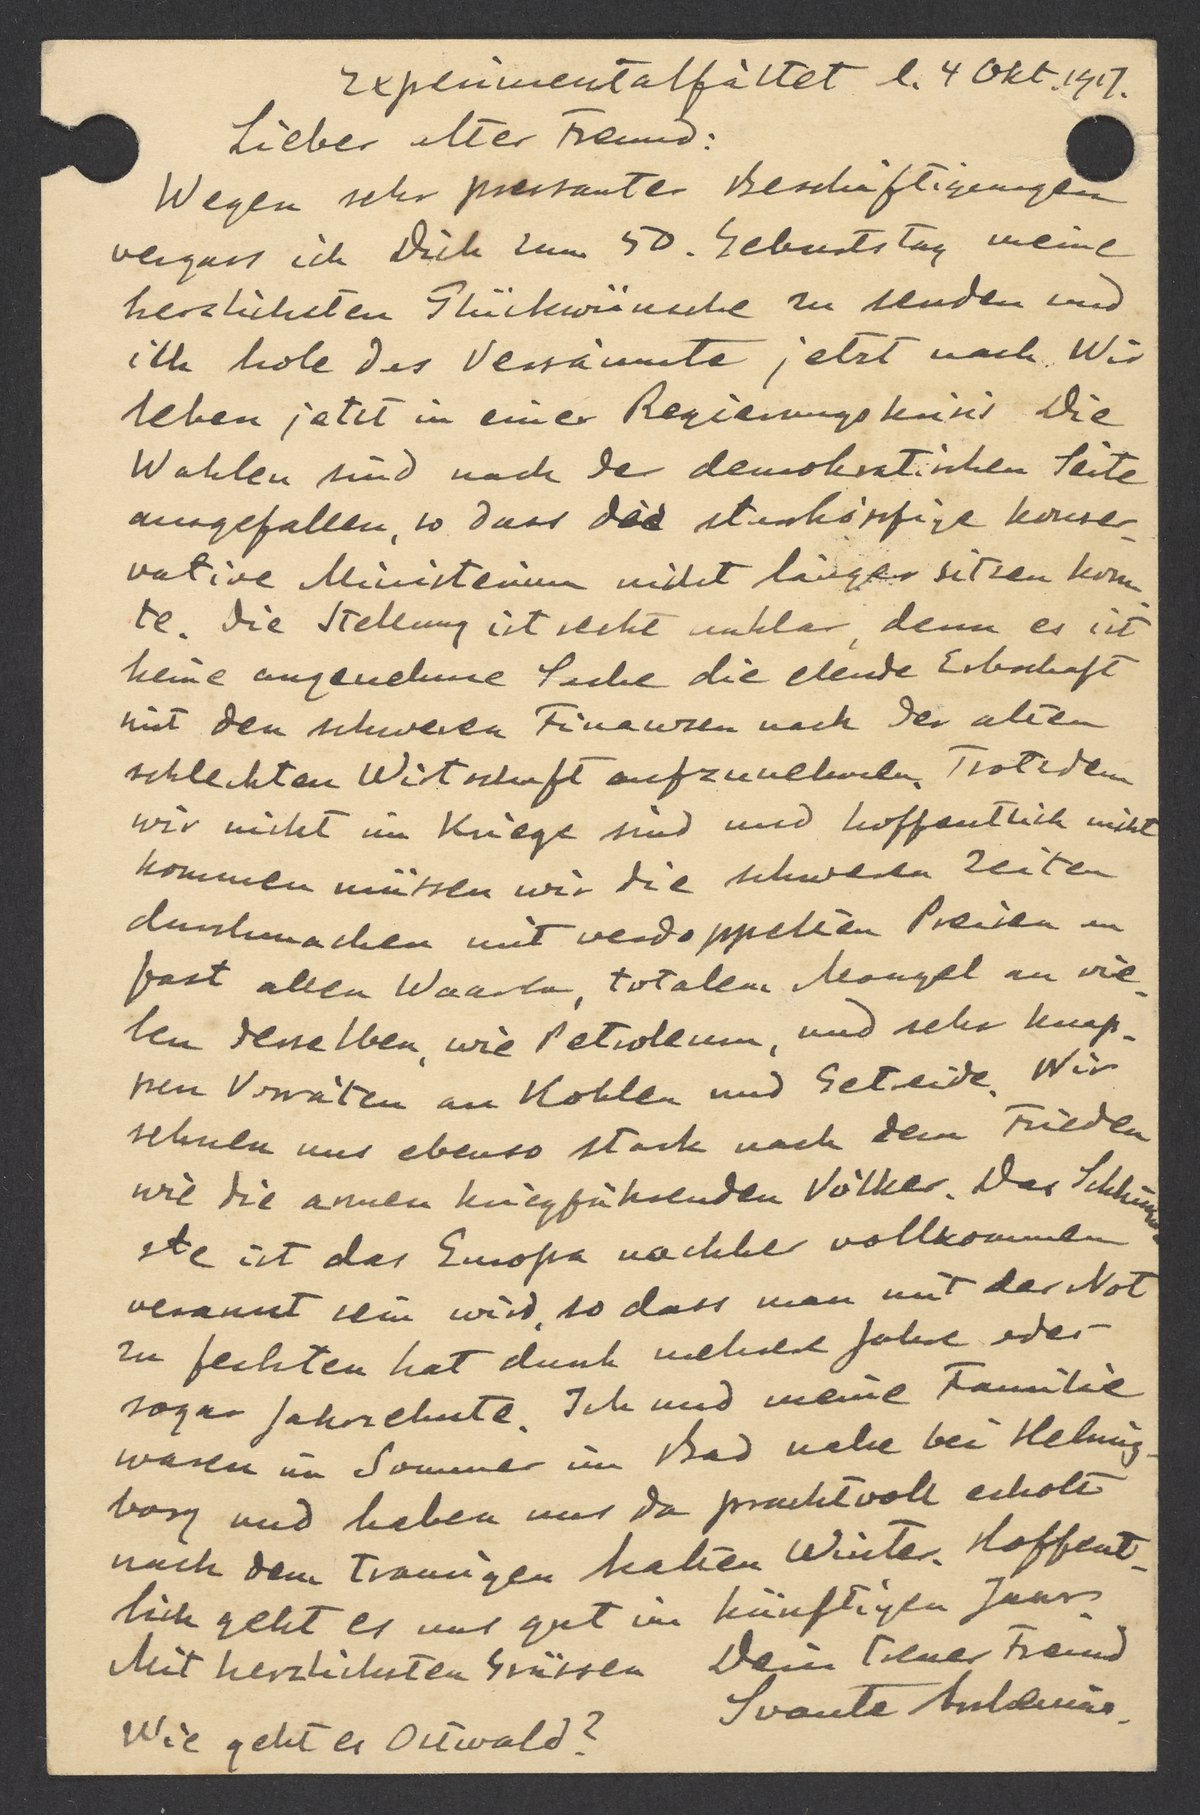 Experimentalfältet d. 4 Okt. 1917.
Lieber alter Freund:
Wegen sehr pressanter Beschäftigungen
vergass ich Dich zum 50. Geburtstag meine
herzlichsten Glückwünsche zu senden und
ich hole das Versäumte jetzt nach. Wir
leben jetzt in einer Regierungskrisis Die
Wahlen sind nach der demokratischen Seite
ausgefallen, so dass das starrköpfige konser-
vative Ministerium nicht länger sitzen konn-
te. Die Stellung ist recht unklar, denn es ist
keine angenehme Sache die elende Erbschaft
mit den schweren Finanzen nach der alten
schlechten Wirtschaft aufzunehmen. Trotzdem
wir nicht im Kriege sind und hoffentlich nicht
kommen müssen wir die schweren Zeiten
durchmachen mit verdoppelten Preisen an
fast allen Waaren, totalem Mangel an vie-
len derselben, wie Petroleum, und sehr knap-
pen Vorräten an Kohlen und Getreide. Wir
sehnen uns ebenso stark nach dem Frieden
wie die armen kriegführenden Völker. Das Schlimm
ste ist das Europa nachher vollkommen
verarmt sein wird, so dass man mit der Not
zu fechten hat durch mehrere Jahre oder
sogar Jahrzehnte. Ich und meine Familie
waren im Sommer im Bad nahe bei Helsing-
borg und haben uns da prachtvoll erholt
nach dem traurigen kalten Winter. Hoffent-
lich geht es uns gut im künftigen Jaar.
Mit herzlichsten Grüssen Dein treuer Freund
Svante Arrhenius.
Wie geht es Ostwald?